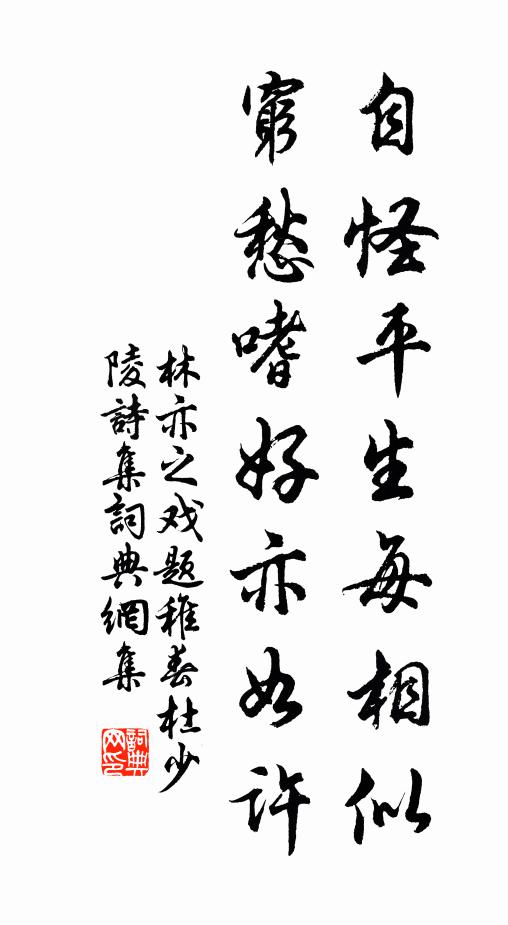 自怪平生每相似
窮愁嗜好亦如許
林亦之戏题稚春杜少
陵詩集詞典網集
詞典网印